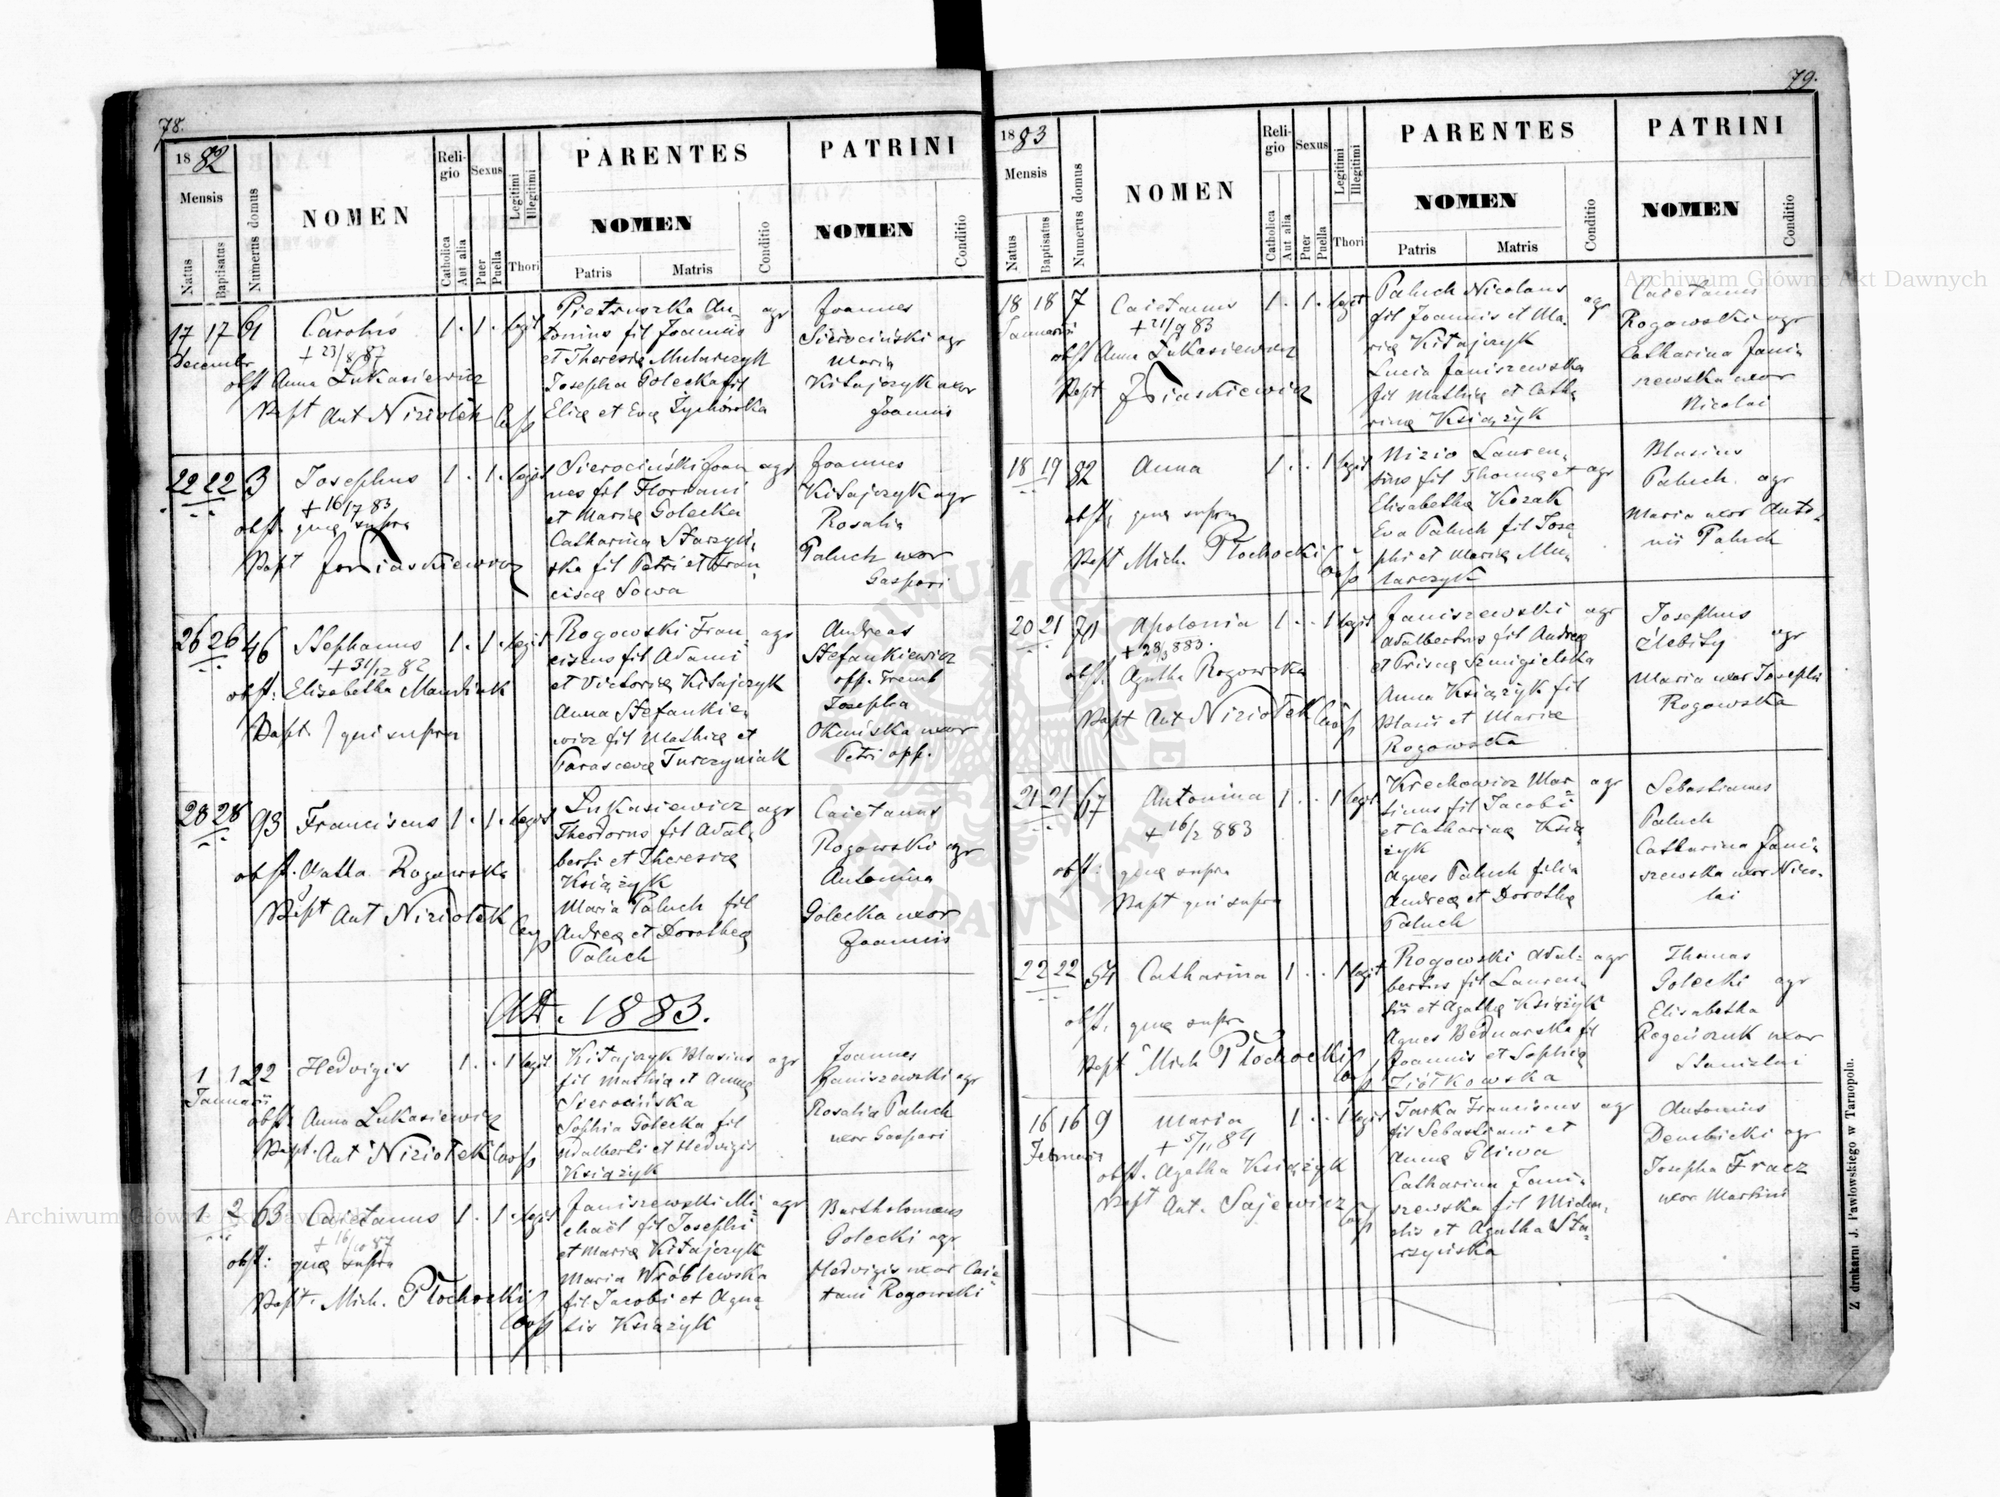 78.
1882
Mensis
Natus
Baptisatus
Numerus domus
NOMEN
Religio
Catholica
Aut alia
Sexus
Puer
Puella
Legitimi
Illegitimi
Thori
PARENTES
NOMEN
Patris
Matris
Conditio
PATRINI
NOMEN
Conditio
17 17 61
Decembr
+ 23/8 87
obst Anna Łukasiewicz
Bapt Ant Niziołek Coop
1 . 1 . legit
Pietruszka An-
tonius fil Joannis
et Theresiæ Mularczyk
Josepha Golecka fil
Eliæ et Evæ Zychowska
agr
Joannes
Sierociński agr
Maria
Kitajczyk uxor
Joannis
22 22 3
Josephus
+ 16/7 83
obst. quæ supra
Bapt
1 . 1 . legit
Sierociński Joan
nes fil Floriani
et Mariæ Golecka
Catharina Starzyń-
ska fil Petri et Fran-
ciscæ Sowa
agr
Joannes
Kitajczyk agr
Rosalia
Paluch uxor
Gaspari
26 26 46
Stephanus
+ 31/12 82
obst: Elisabetha
Bapt qui supra
1 . 1 . legit
Rogowski Fran-
ciscus fil Adami
et Victoriæ Kitajczyk
Anna Stefankie-
wicz fil Mathiæ et
Parascevæ Turczyniak
agr
Andreas
Stefankiewicz
opp. Tremb
Josepha
uxor
Petri opp.
28 28 93
Franciscus
obst. Rogowska
Bapt Ant Niziołek Coop
1 . 1 . legit
Łukasiewicz
Theodorus fil Adal-
berti et Theresiæ
Książyk
Maria Paluch fil
Andreæ et Dorotheæ
Paluch
agr
Caietanus
Rogowski agr
Antonina
Golecka uxor
Joannis
AD. 1883.
1 1 22
Januarii
Hedvigis
obst. Anna Łukasiewicz
Bapt. Ant Niziołek Coop
1 . . 1 legit
Kitajczyk Blasius
fil Mathiæ et Annæ
Sierocińska
Sophia Golecka fil
Adalberti et Hedvigis
Książyk
agr
Joannes
Janiszewski agr
Rosalia Paluch
uxor Gaspari
1 2 63
Caietanus
+ 16/10 87
obst: quæ supra
Bapt. Mich. Płochocki Coop
1 . 1 . legit
Janiszewski Mi-
chaël fil Josephi
et Mariæ Kitajczyk
Maria Wróblewska
fil Jacobi et Agne-
tis Książyk
agr
Bartholomeus
Golecki agr
Hedvigis uxor Caie-
tani Rogowski
79.
1883
Mensis
Natus
Baptisatus
Numerus domus
NOMEN
Religio
Catholica
Aut alia
Sexus
Puer
Puella
Legitimi
Illegitimi
Thori
PARENTES
NOMEN
Patris
Matris
Conditio
PATRINI
NOMEN
Conditio
18 18 7
Januarii
Caietanus
+ 21/9 83
obst Anna Łukasiewicz
Bapt
1 . 1 . legit
Paluch Nicolaus
fil Joannis et Ma-
riæ Kitajczyk
Lucia Janiszewska
fil Mathiæ et Catha
rinæ Książyk
agr
Caietanus
Rogowski agr
Catharina Jani-
szewska uxor
Nicolai
18 19 82
Anna
obst. quæ supra
Bapt Mich. Płochocki Coop
1 . . 1 legit
Nizio Lauren-
tius fil Thomæ et
Elisabethæ Kozak
Eva Paluch fil Jose-
phi et Mariæ Mu-
larczyk
agr
Blasius
Paluch agr
Maria uxor Anto-
nii Paluch
20 21 71
Apolonia
+ 28/3 883
obst. Agatha Rogowska
Bapt Ant Niziołek Coop
1 . . 1 legit
Janiszewski
Adalbertus fil Andreæ
et Priscæ Szmigielska
Anna Książyk fil
Blasii et Mariæ
Rogowska
agr
Josephus
agr
Maria uxor Josephi
Rogowska
21 21 67
Antonina
+ 16/2 883
obst: quæ supra
Bapt qui supra
1 . . 1 legit
Krechowicz Mar-
tinus fil Jacobi
et Catharinæ Ksią
żyk
Agnes Paluch filia
Andreæ et Dorotheæ
Paluch
agr
Sebastianus
Paluch
Catharina Jani-
szewska uxor Nico-
lai
22 22 54
Catharina
obst. quæ supra
Bapt Mich Płochocki Coop
1 . . 1 legit
Rogowski Adal-
bertus fil Lauren-
tii et Agathæ Książyk
Agnes Bednarska fil
Joannis et Sophiæ
Ziółkowska
agr
Thomas
Golecki agr
Elisabetha
uxor
Stanislai
16 16 9
Februarii
Maria
+ 5/11 84
obst. Agatha Książyk
Bapt Ant. Sajewicz Coop
1 . . 1 legit
Jarka Franciscus
fil Sebastiani et
Annæ Gliwa
Catharina Jani-
szewska fil Micha-
elis et Agatha Sta-
rzyńska
agr
Antonius
Dembicki agr
Josepha Fracz
uxor Martini
Z drukarni J. Pawłowskiego w Tarnopolu.
Archiwum Główne Akt Dawnych
Archiwum Główne Akt Dawnych
ARCHIWUM GŁÓWNE AKT DAWNYCH